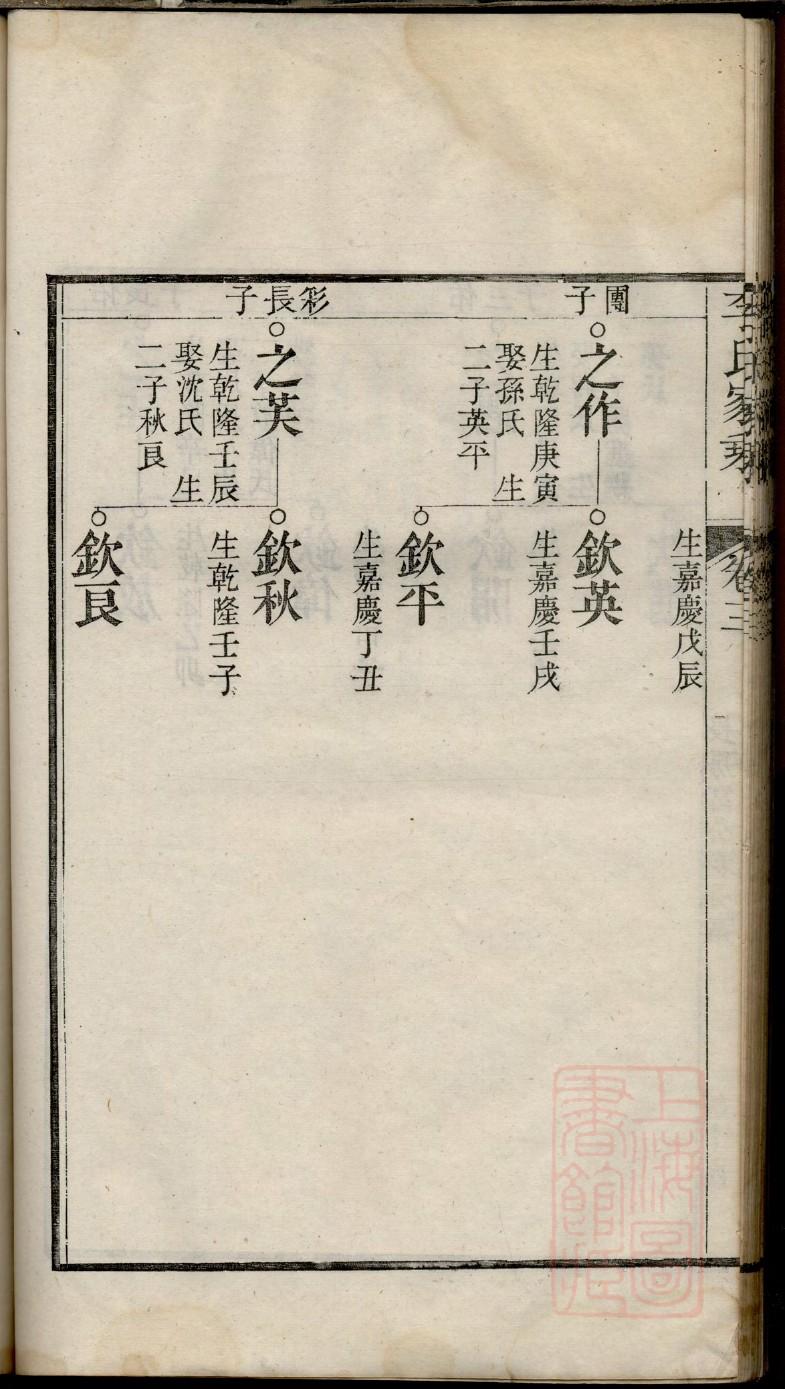 李氏家乘
卷三
生嘉慶戊辰
團子
之作
生乾隆庚寅
娶孫氏 生
二子英平
欽英
生嘉慶壬戌
欽平
生嘉慶丁丑
彩長子
之芙
生乾隆壬辰
娶沈氏 生
二子秋良
欽秋
生乾隆壬子
欽良
上海圖
書館藏